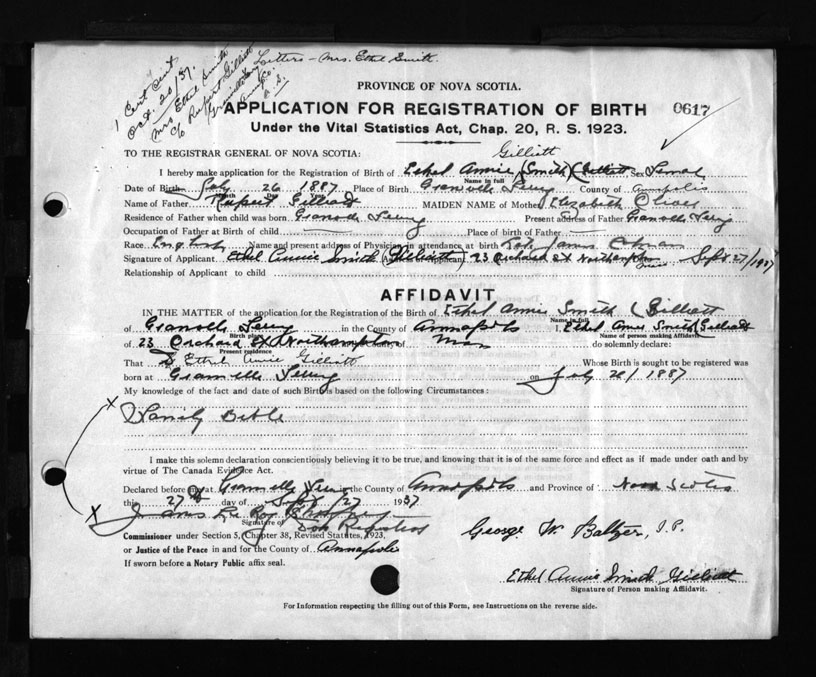 Letters - Mrs. Ethel Smith.
1 Cert sent
Oct. 20/37.
Mrs. Ethel Smith
c/o Rupert Gilliatt
Granville Ferry
Anna. Co.
N.S.
PROVINCE OF NOVA SCOTIA.
APPLICATION FOR REGISTRATION OF BIRTH 0617
Under the Vital Statistics Act, Chap. 20, R. S. 1923.
TO THE REGISTRAR GENERAL OF NOVA SCOTIA: Gilliatt
I hereby make application for the Registration of Birth of Ethel Annie (Smith) Sex Female
Name in full
Date of Birth 26 1887 Place of Birth Granville Ferry County of Annapolis
Name of Father Rupert Gilliatt MAIDEN NAME of Mother Elizabeth Oliver
Residence of Father when child was born Granville Ferry Present address of Father Granville Ferry
Occupation of Father at Birth of child — Place of birth of Father —
Race English Name and present address of Physician in attendance at birth
Signature of Applicant Ethel Annie Smith (Gilliatt) Address of Applicant 23 Orchard St Northampton Mass Sept 27/1937
Relationship of Applicant to child
AFFIDAVIT
IN THE MATTER of the application for the Registration of the Birth of Ethel Annie Smith (Gilliatt
Name in full
of Granville Ferry in the County of Annapolis I, Ethel Annie Smith (Gilliatt
Birth place Name of person making Affidavit
of 23 Orchard St Northampton Mass do solemnly declare:
Present residence
That Ethel Annie Gilliatt Whose Birth is sought to be registered was
born at Granville Ferry on 26/1887
My knowledge of the fact and date of such Birth is based on the following Circumstances:
X
Family Bible
I make this solemn declaration conscientiously believing it to be true, and knowing that it is of the same force and effect as if made under oath and by
virtue of The Canada Evidence Act.
Declared before me at Granville Ferry in the County of Annapolis and Province of Nova Scotia
this 27th day of Sept /27 1937
X
Signature of
Commissioner under Section 5, Chapter 38, Revised Statutes, 1923, George W. Baltzer, J.P.
or Justice of the Peace in and for the County of Annapolis
If sworn before a Notary Public affix seal.
Ethel Annie Smith Gilliatt
Signature of Person making Affidavit.
For Information respecting the filling out of this Form, see Instructions on the reverse side.